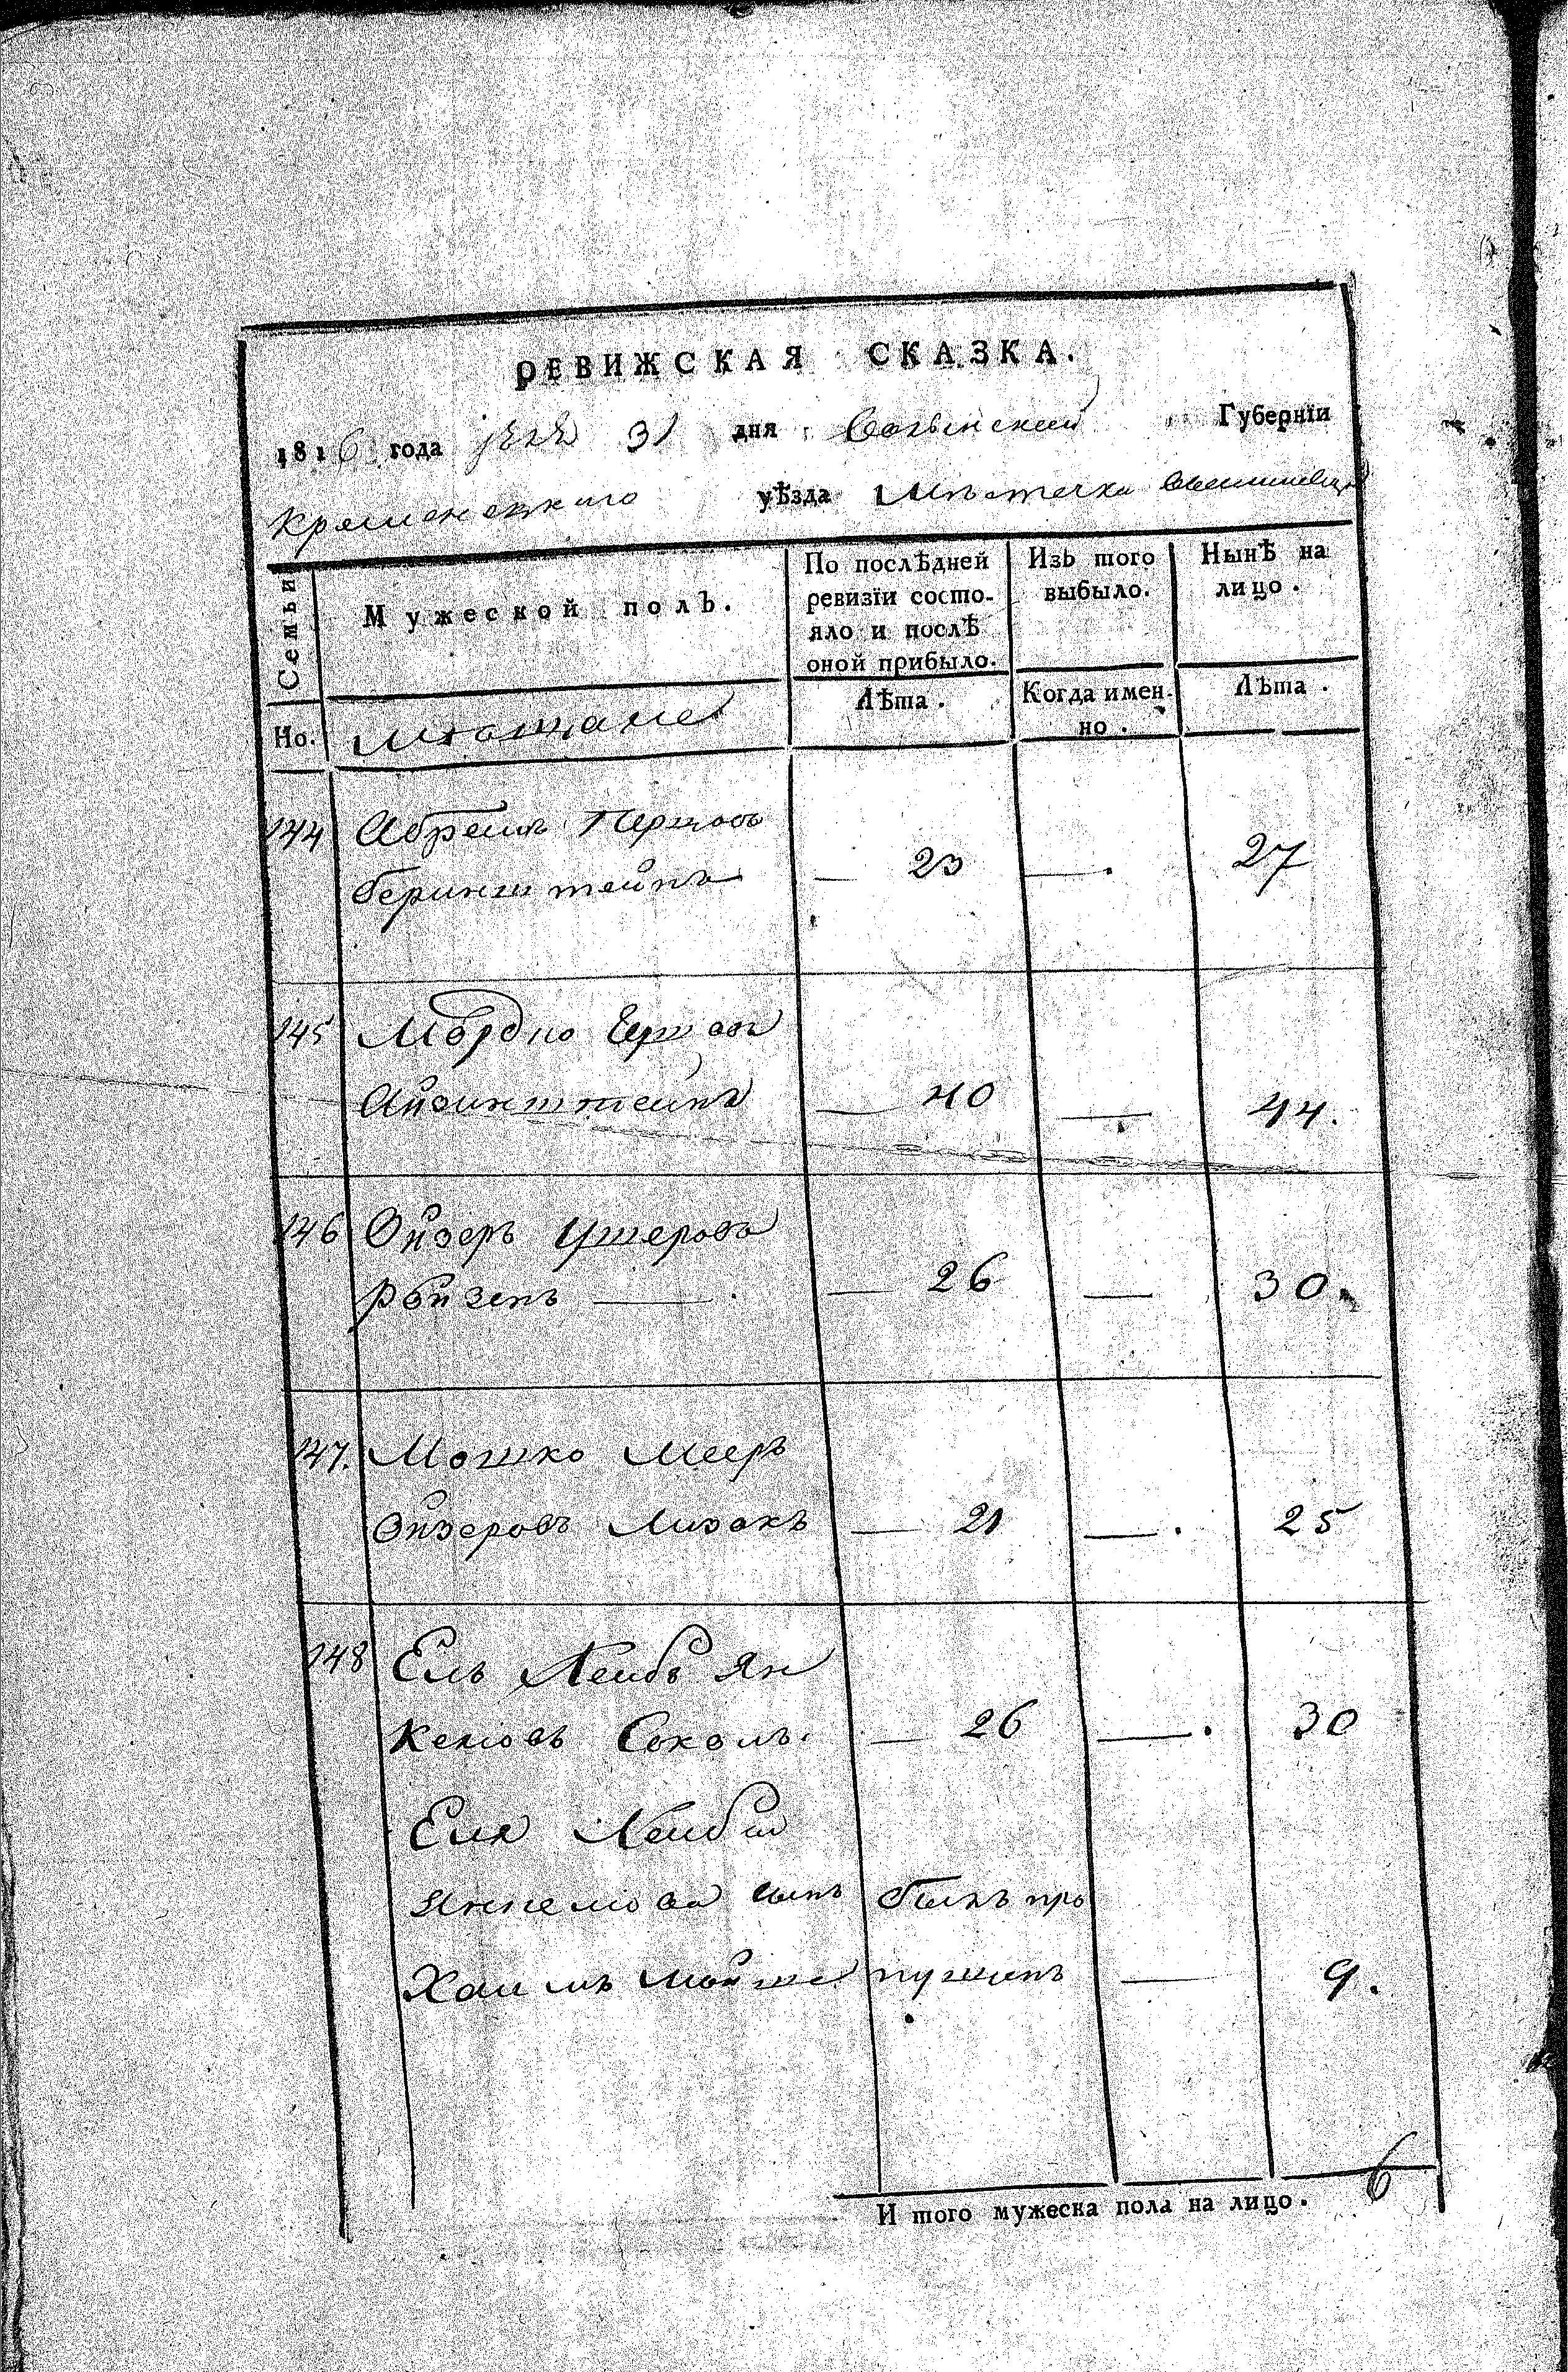 РЕВИЖСКАЯ СКАЗКА.
1816 года 31 дня Волынской Губернїи
Кременецкаго уѣзда Мѣстечка
Семьи
Мужеской полъ.
По послѣдней ревизїи состо-
яло и послѣ
оной прибыло.
Изъ того
выбыло.
Нынѣ на
лицо.
Но.
Мѣщане
Лѣта.
Когда имен-
но.
Лѣта.
144 Абрамъ
Беринштейнъ — 23 — . 27
145 Мордко
Айзинштейнъ — 40 — 44.
146 Ойзеръ Ушеровъ
Ройзенъ — . — 26 — 30.
147. Мошко Мееръ
Ойзеровъ Лизакъ — 21 — . 25
148 Ель Лейбъ Ян
келіовъ Соколъ. — 26 — . 30
Еля Лейби
Янкеліова сынъ былъ про
Хаимъ Мойше пущенъ — 9.
И того мужеска пола на лицо. 6